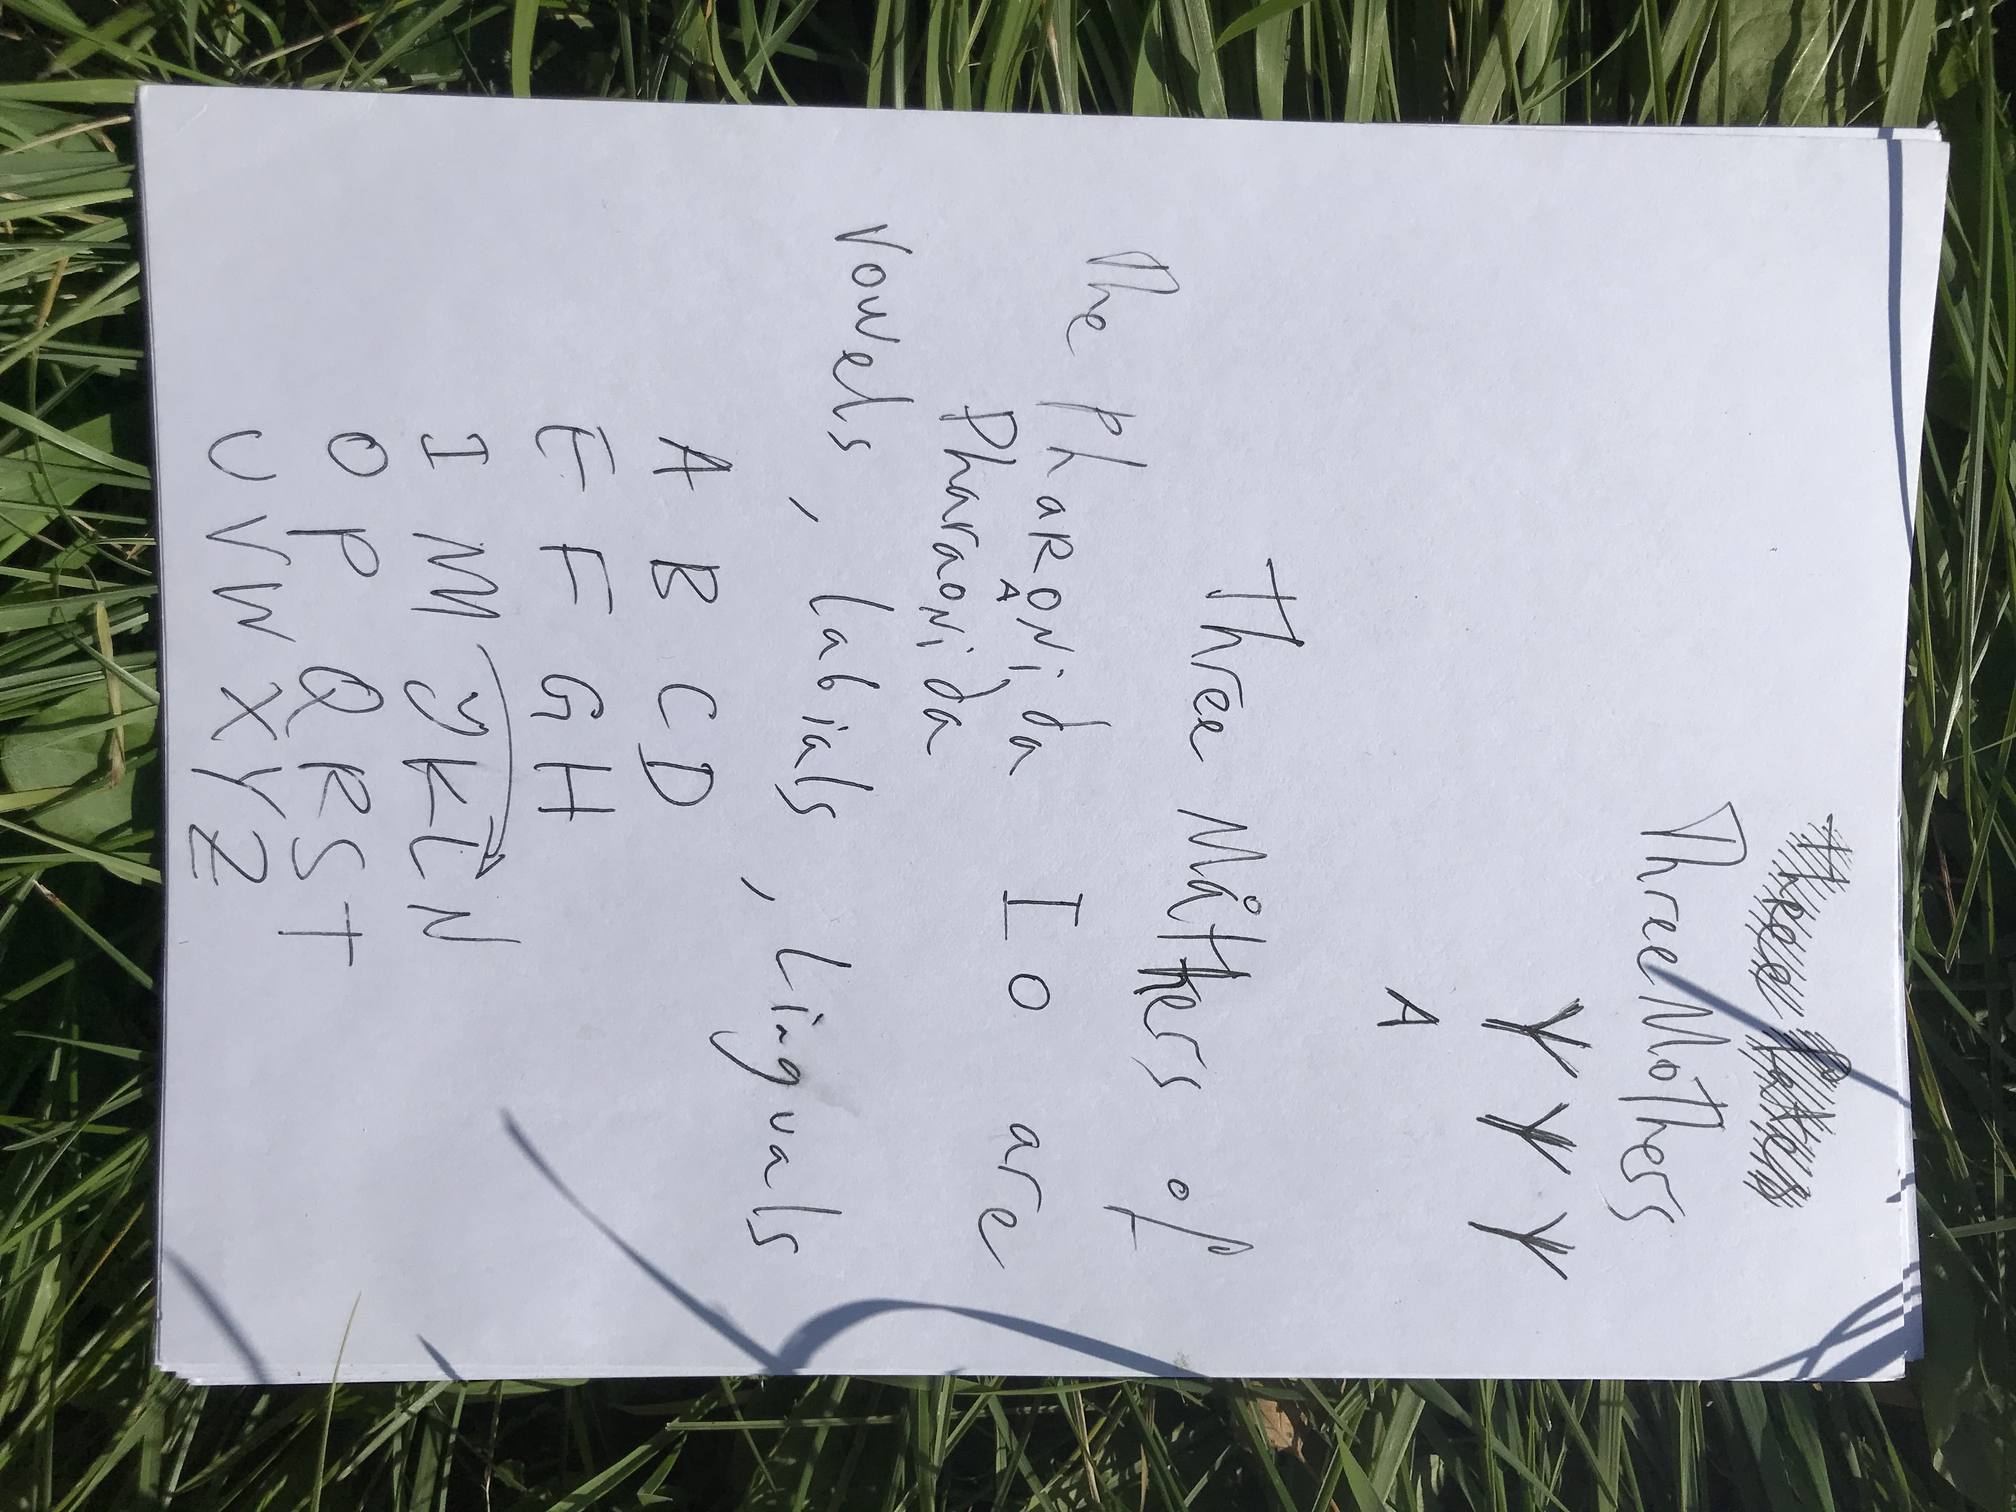 Three Mothers
Y Y Y
A
Three Måthers of
The PhaRONida IO are
A
PharaoNida
Vowels, Labials, Linguals
A B C D
E F G H
I M J K L N
O P Q R S T
U V W X Y Z